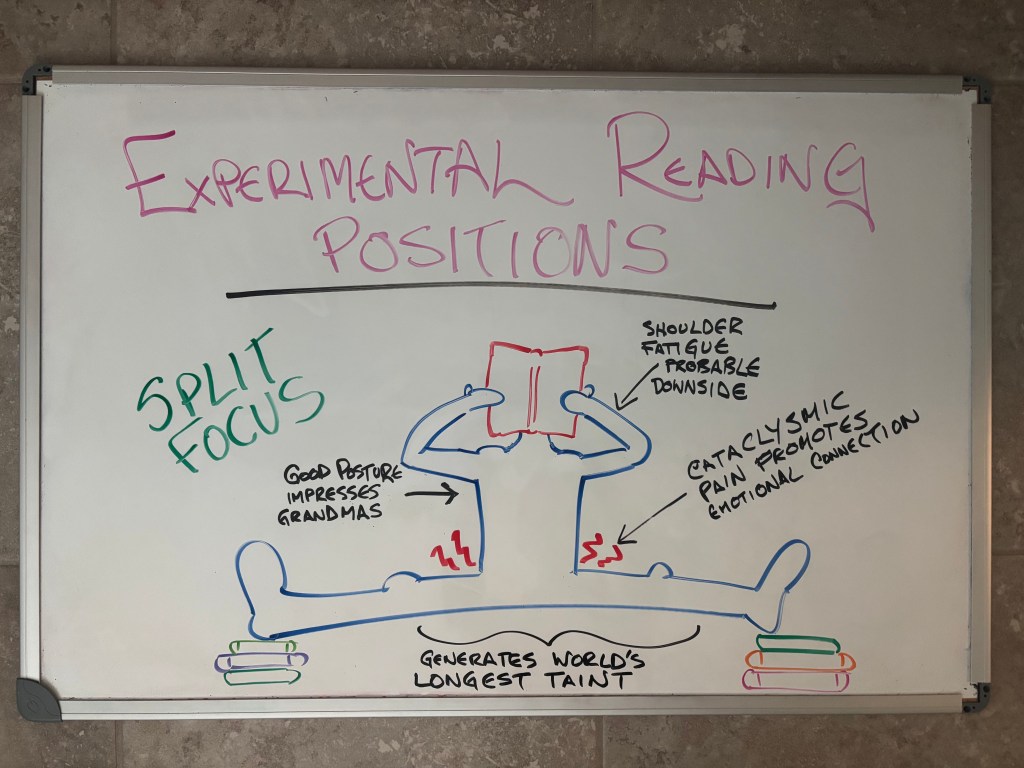 EXPERIMENTAL READING
POSITIONS
SPLIT
FOCUS
SHOULDER
FATIGUE
PROBABLE
DOWNSIDE
GOOD POSTURE
IMPRESSES
GRANDMAS
CATACLYSMIC
PAIN PROMOTES
EMOTIONAL CONNECTION
GENERATES WORLD'S
LONGEST TAINT